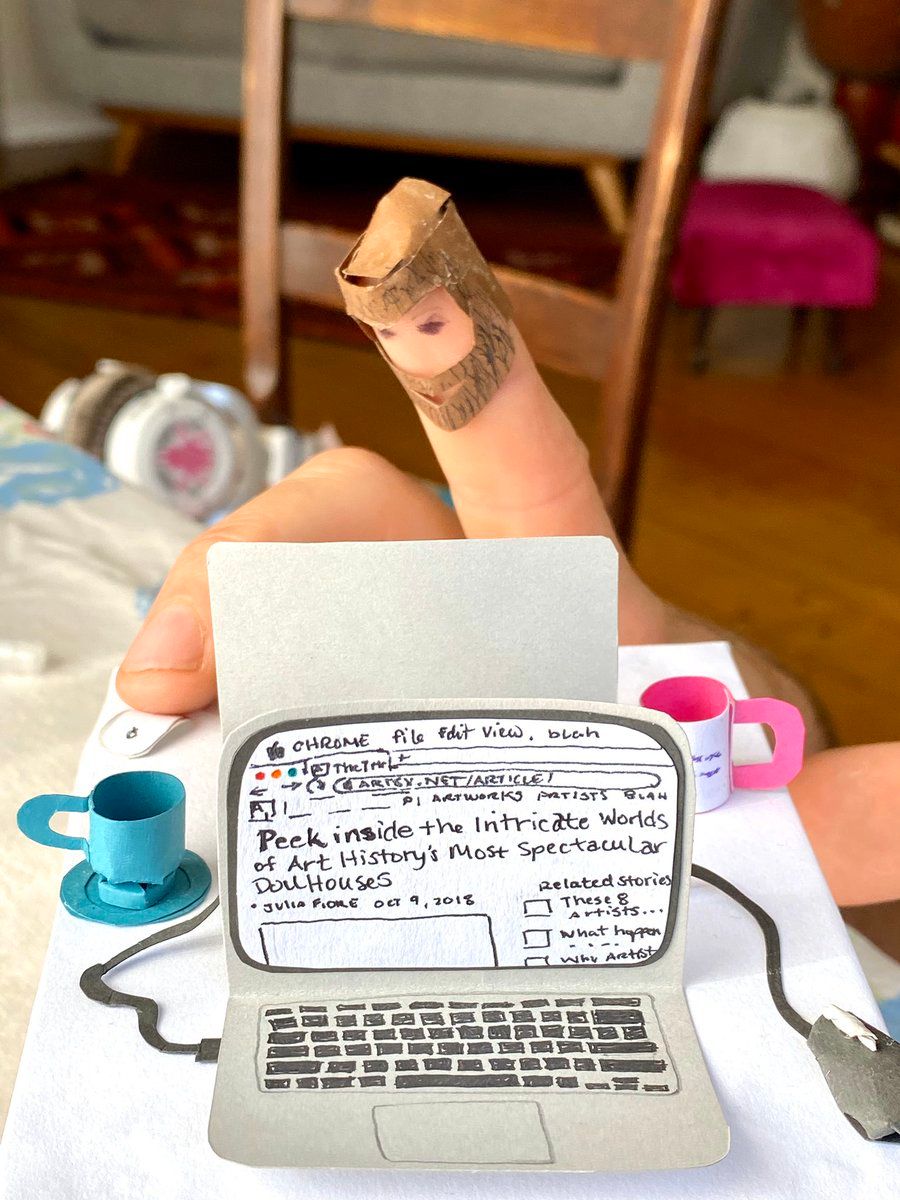 CHROME File Edit View. blah
ARTSY.NET/ARTICLE/
ARTWORKS ARTISTS BLAH
Peek inside the Intricate Worlds
of Art History's Most Spectacular
DollHouses
• JULIA FIORE OCT 9, 2018
Related stories
These 8
Artists...
What happen
Why Artist